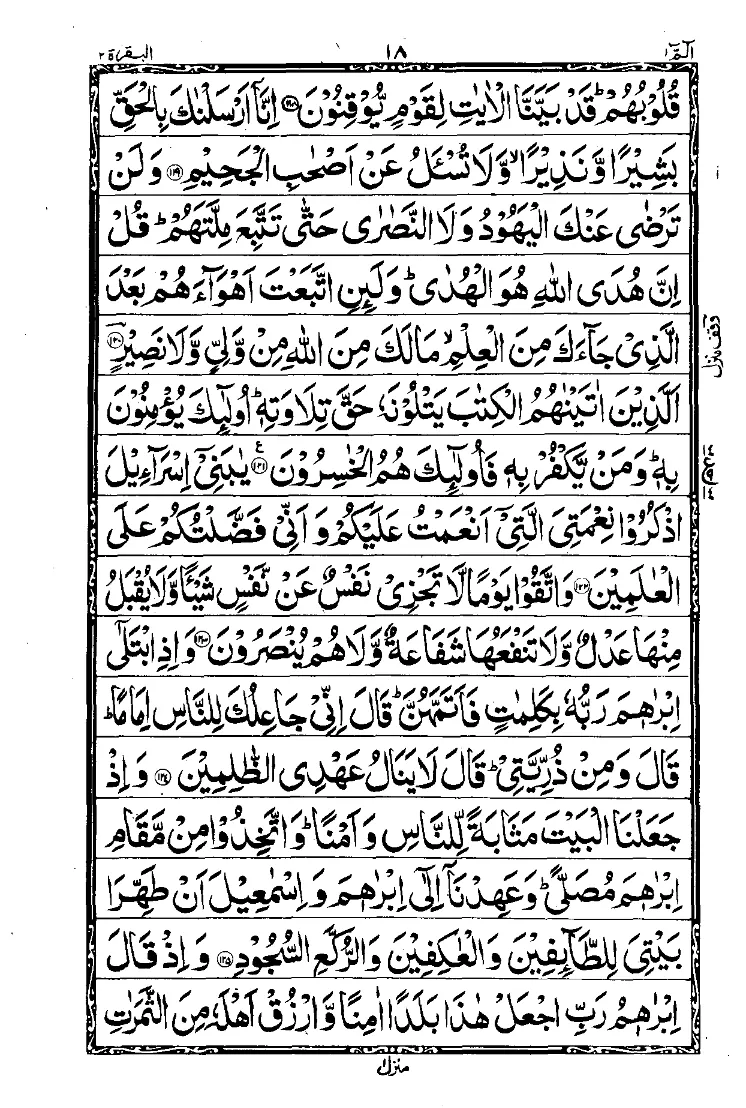 الٓمّٓ ١ ١٨ البقرة ٢
قُلُوْبُهُمْ ؕ قَدْ بَيَّنَّا الْاٰيٰتِ لِقَوْمٍ يُّوْقِنُوْنَ ﴿۱۱۸﴾ اِنَّاۤ اَرْسَلْنٰكَ بِالْحَقِّ
بَشِيْرًا وَّنَذِيْرًا ۙ وَّلَا تُسْـَٔلُ عَنْ اَصْحٰبِ الْجَحِيْمِ ﴿۱۱۹﴾ وَلَنْ
تَرْضٰى عَنْكَ الْيَهُوْدُ وَلَا النَّصٰرٰى حَتّٰى تَتَّبِعَ مِلَّتَهُمْ ؕ قُلْ
اِنَّ هُدَى اللّٰهِ هُوَ الْهُدٰى ؕ وَلَئِنِ اتَّبَعْتَ اَهْوَآءَهُمْ بَعْدَ
الَّذِيْ جَآءَكَ مِنَ الْعِلْمِ ۙ مَا لَكَ مِنَ اللّٰهِ مِنْ وَّلِيٍّ وَّلَا نَصِيْرٍ ﴿۱۲۰﴾
اَلَّذِيْنَ اٰتَيْنٰهُمُ الْكِتٰبَ يَتْلُوْنَهٗ حَقَّ تِلَاوَتِهٖ ؕ اُولٰٓئِكَ يُؤْمِنُوْنَ
بِهٖ ؕ وَمَنْ يَّكْفُرْ بِهٖ فَاُولٰٓئِكَ هُمُ الْخٰسِرُوْنَ ﴿۱۲۱﴾ ع يٰبَنِيْۤ اِسْرَآءِيْلَ
اذْكُرُوْا نِعْمَتِيَ الَّتِيْۤ اَنْعَمْتُ عَلَيْكُمْ وَاَنِّيْ فَضَّلْتُكُمْ عَلَى
الْعٰلَمِيْنَ ﴿۱۲۲﴾ وَاتَّقُوْا يَوْمًا لَّا تَجْزِيْ نَفْسٌ عَنْ نَّفْسٍ شَيْـًٔا وَّلَا يُقْبَلُ
مِنْهَا عَدْلٌ وَّلَا تَنْفَعُهَا شَفَاعَةٌ وَّلَا هُمْ يُنْصَرُوْنَ ﴿۱۲۳﴾ وَاِذِ ابْتَلٰٓى
اِبْرٰهٖمَ رَبُّهٗ بِكَلِمٰتٍ فَاَتَمَّهُنَّ ؕ قَالَ اِنِّيْ جَاعِلُكَ لِلنَّاسِ اِمَامًا ؕ
قَالَ وَمِنْ ذُرِّيَّتِيْ ؕ قَالَ لَا يَنَالُ عَهْدِي الظّٰلِمِيْنَ ﴿۱۲۴﴾ وَاِذْ
جَعَلْنَا الْبَيْتَ مَثَابَةً لِّلنَّاسِ وَاَمْنًا ؕ وَاتَّخِذُوْا مِنْ مَّقَامِ
اِبْرٰهٖمَ مُصَلًّى ؕ وَعَهِدْنَاۤ اِلٰٓى اِبْرٰهٖمَ وَاِسْمٰعِيْلَ اَنْ طَهِّرَا
بَيْتِيَ لِلطَّآئِفِيْنَ وَالْعٰكِفِيْنَ وَالرُّكَّعِ السُّجُوْدِ ﴿۱۲۵﴾ وَاِذْ قَالَ
اِبْرٰهٖمُ رَبِّ اجْعَلْ هٰذَا بَلَدًا اٰمِنًا وَّارْزُقْ اَهْلَهٗ مِنَ الثَّمَرٰتِ
وقف منزل
منزل